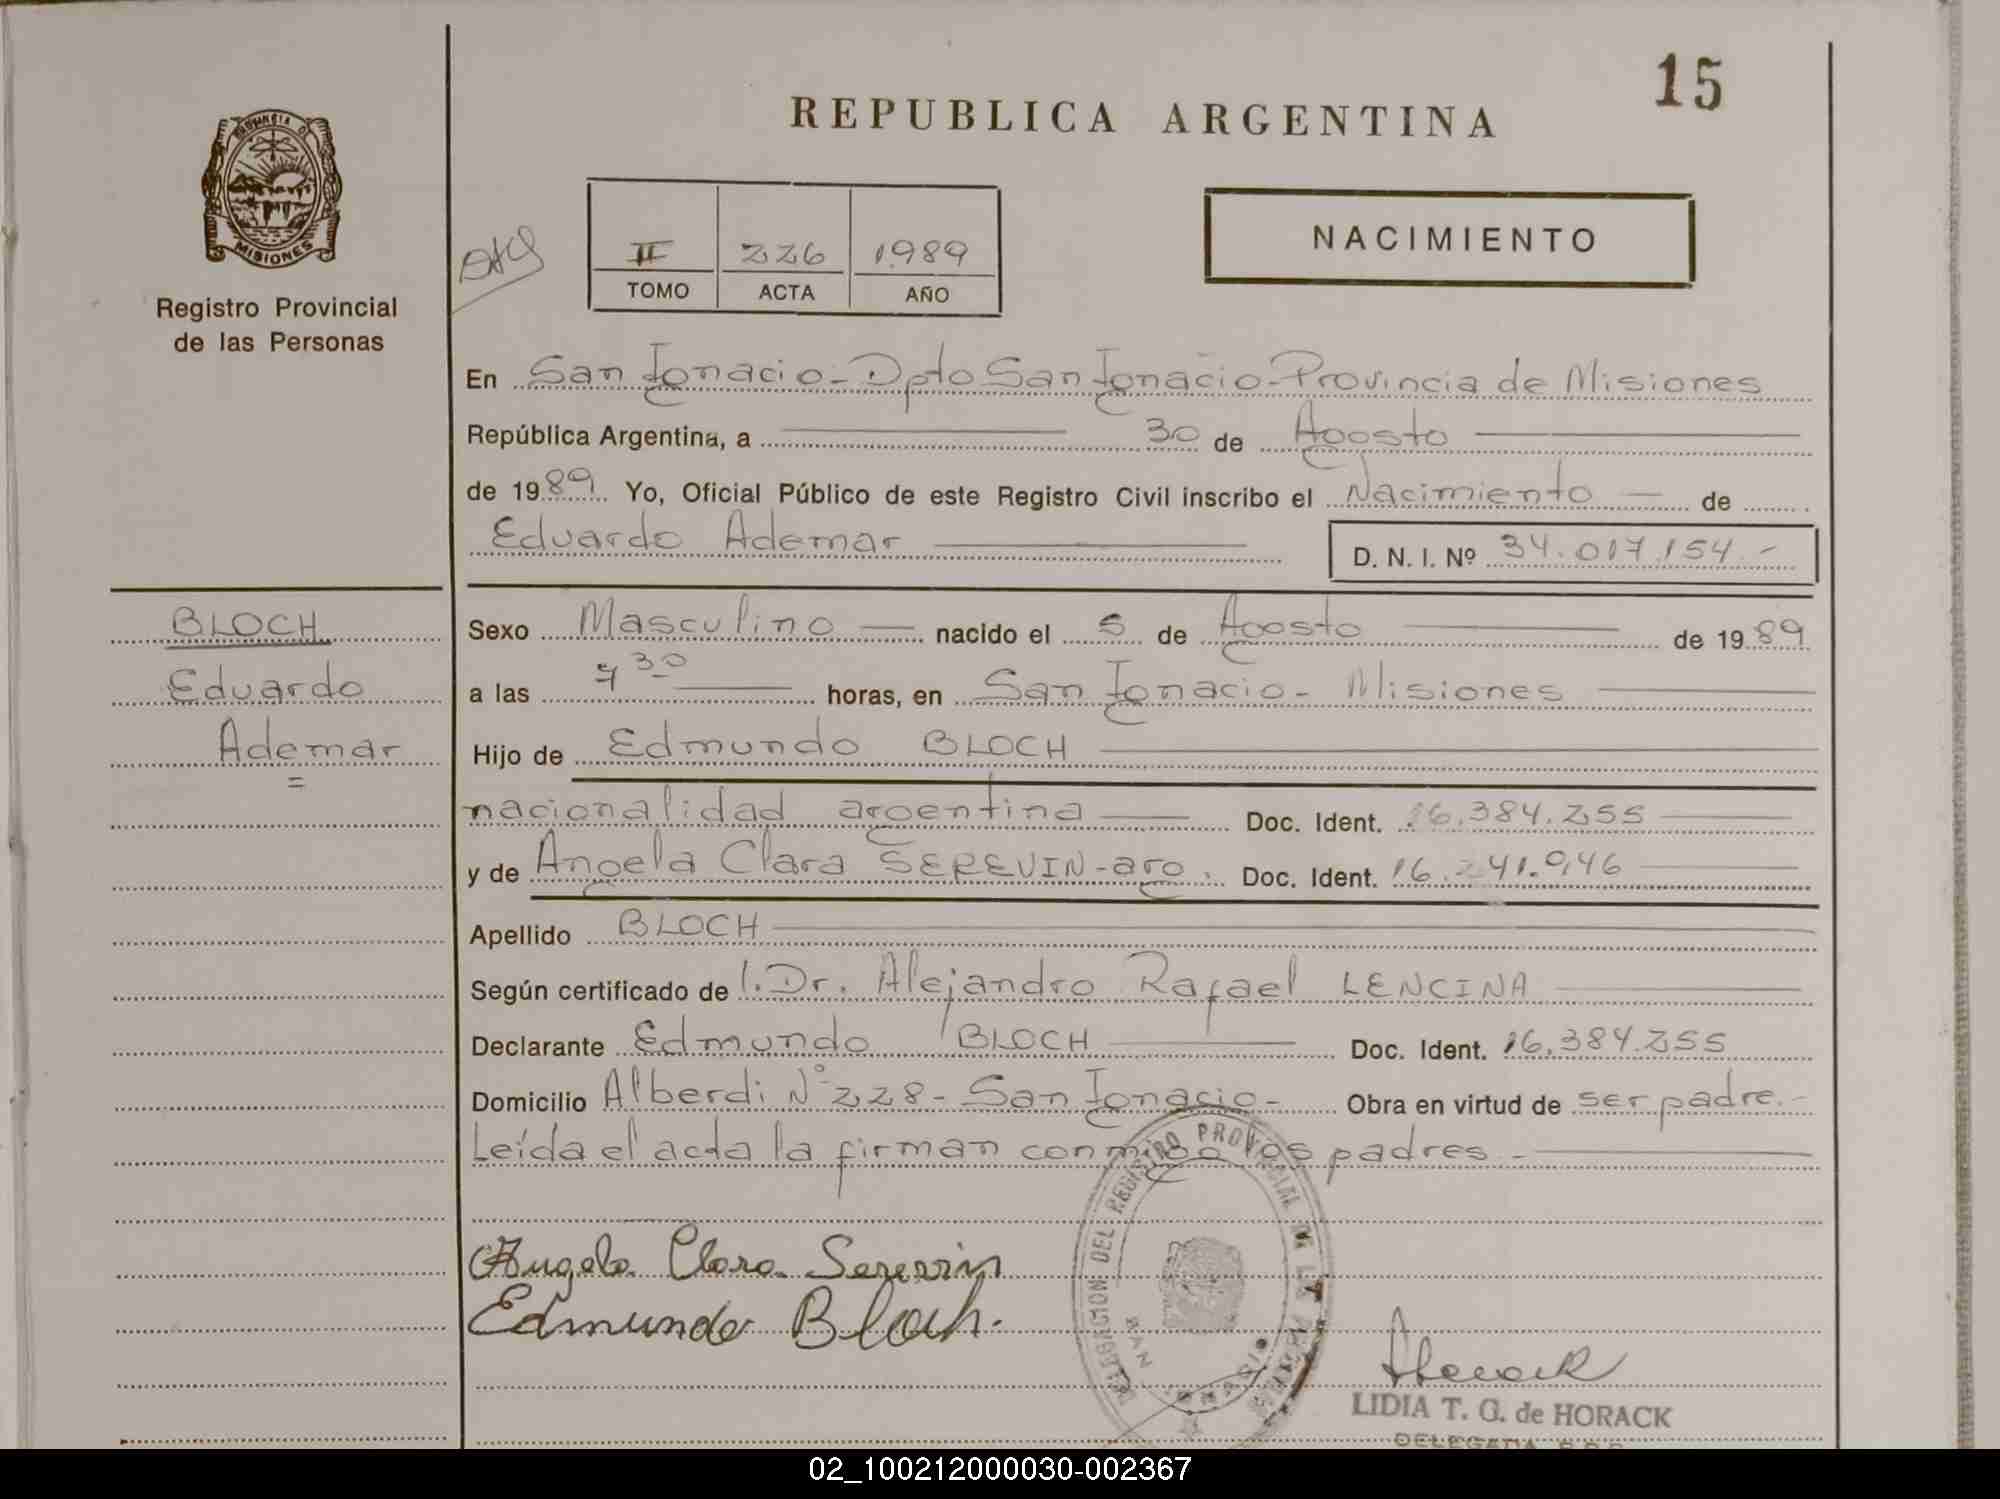 15
REPUBLICA ARGENTINA
PROVINCIA DE
MISIONES
Registro Provincial
de las Personas
II 226 1989
TOMO ACTA AÑO
NACIMIENTO
En San Ignacio - Dpto San Ignacio - Provincia de Misiones
República Argentina, a 30 de Agosto
de 1989 Yo, Oficial Público de este Registro Civil inscribo el Nacimiento de
Eduardo Ademar D. N. I. Nº 34.017.154.-
BLOCH
Eduardo
Ademar
Sexo Masculino nacido el 5 de Agosto de 1989
a las 7 30 horas, en San Ignacio - Misiones
Hijo de Edmundo BLOCH
nacionalidad argentina Doc. Ident. 16.384.255
y de Angela Clara SEREVIN - arg. Doc. Ident. 16.241.946
Apellido BLOCH
Según certificado de l. Dr. Alejandro Rafael LENCINA
Declarante Edmundo BLOCH Doc. Ident. 16.384.255
Domicilio Alberdi N° 228 - San Ignacio - Obra en virtud de ser padre.-
Leída el acta la firman conmigo los padres -
DELEGACION DEL REGISTRO PROVINCIAL DE LAS PERSONAS
SAN IGNACIO
Angela Clara Serevin
Edmundo Bloch.
Horack
LIDIA T. G. de HORACK
DELEGADA R.P.P.
02_100212000030-002367